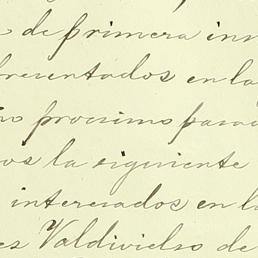 de primera ins
presentados en la
proximo pasa
os la siguiente
interesados en l
es Valdivielso de